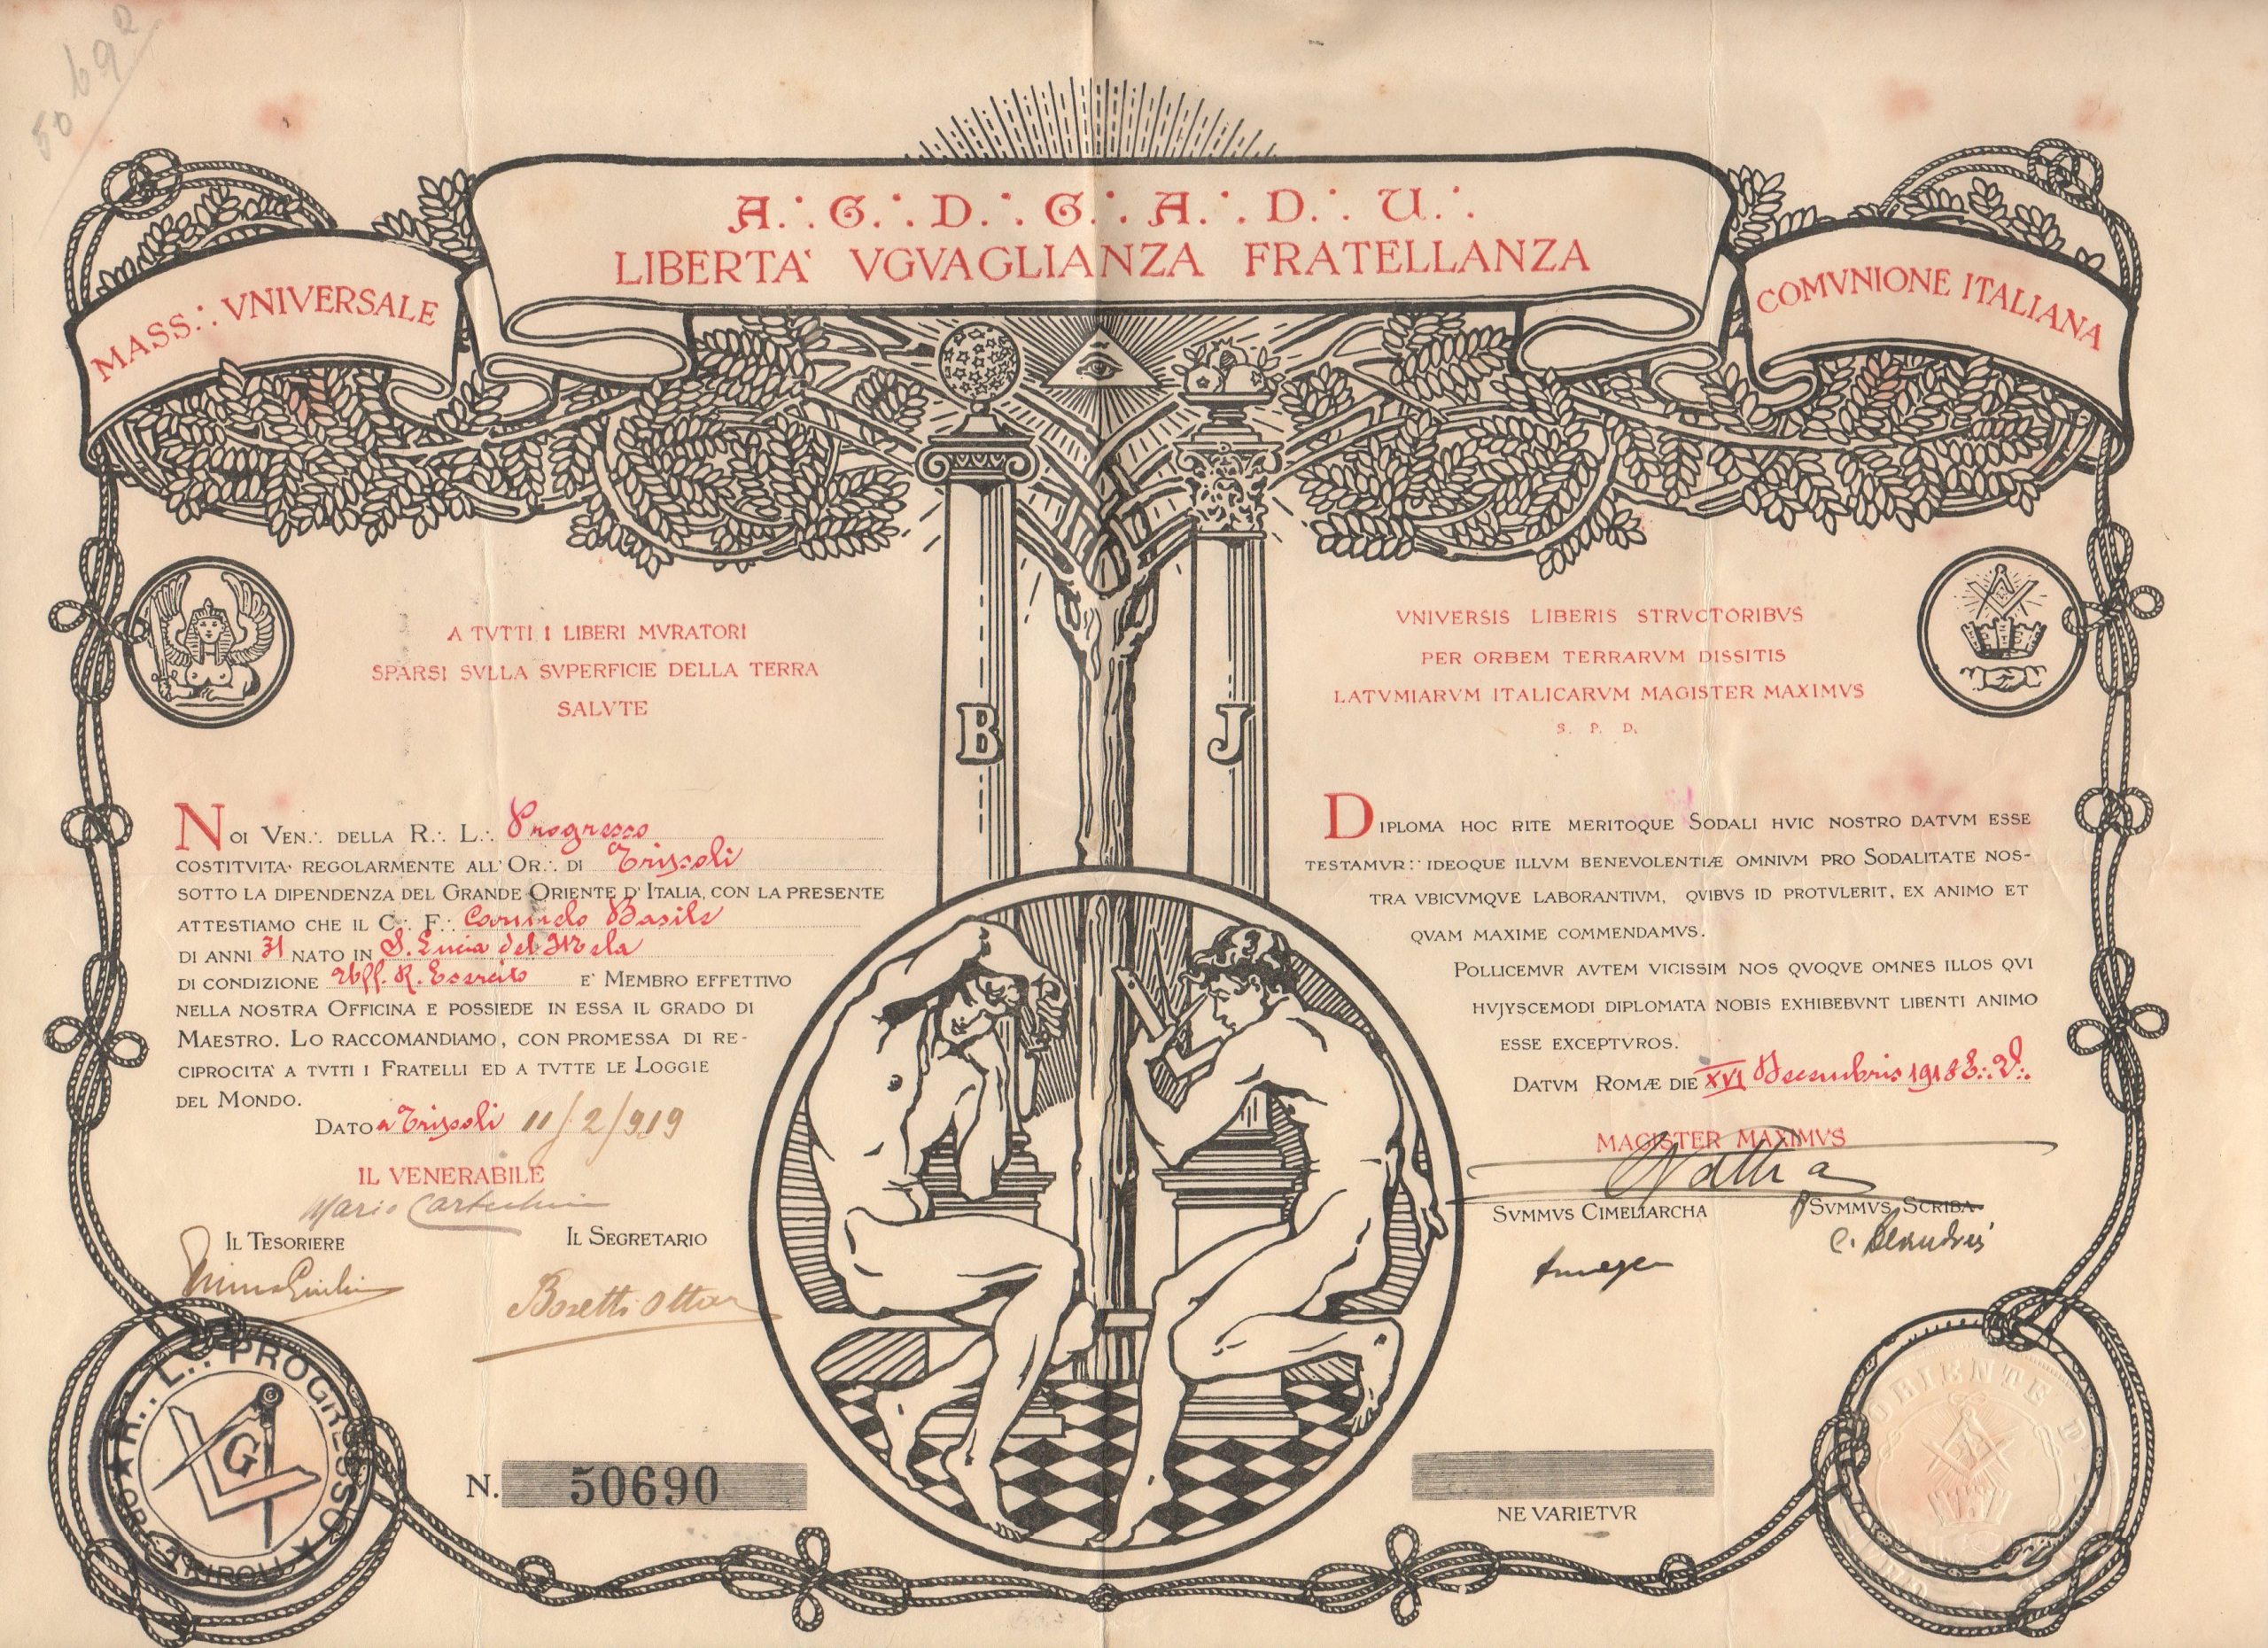 50692
A∴ G∴ D∴ G∴ A∴ D∴ U∴
LIBERTA' VGVAGLIANZA FRATELLANZA
MASS∴ VNIVERSALE
COMVNIONE ITALIANA
A TVTTI I LIBERI MVRATORI
SPARSI SVLLA SVPERFICIE DELLA TERRA
SALVTE
B
J
NOI VEN∴ DELLA R∴ L∴ Progresso
COSTITVITA' REGOLARMENTE ALL'OR∴ DI Tripoli
SOTTO LA DIPENDENZA DEL GRANDE ORIENTE D'ITALIA, CON LA PRESENTE
ATTESTIAMO CHE IL C∴ F∴ Corrado Basile
DI ANNI 31 NATO IN S. Lucia del Mela
DI CONDIZIONE Uff. R. Esercito E' MEMBRO EFFETTIVO
NELLA NOSTRA OFFICINA E POSSIEDE IN ESSA IL GRADO DI
MAESTRO. LO RACCOMANDIAMO, CON PROMESSA DI RE-
CIPROCITA' A TVTTI I FRATELLI ED A TVTTE LE LOGGIE
DEL MONDO.
DATO a Tripoli 11/2/919
IL VENERABILE
Mario
IL TESORIERE
IL SEGRETARIO
Bosetti Ottav
R∴ L∴ PROGRESSO
OR∴ TRIPOLI
G
N. 50690
VNIVERSIS LIBERIS STRVCTORIBVS
PER ORBEM TERRARVM DISSITIS
LATVMIARVM ITALICARVM MAGISTER MAXIMVS
S. P. D.
DIPLOMA HOC RITE MERITOQUE SODALI HVIC NOSTRO DATVM ESSE
TESTAMVR: IDEOQUE ILLVM BENEVOLENTIÆ OMNIVM PRO SODALITATE NOS-
TRA VBICVMQVE LABORANTIVM, QVIBVS ID PROTVLERIT, EX ANIMO ET
QVAM MAXIME COMMENDAMVS.
POLLICEMVR AVTEM VICISSIM NOS QVOQVE OMNES ILLOS QVI
HVJVSCEMODI DIPLOMATA NOBIS EXHIBEBVNT LIBENTI ANIMO
ESSE EXCEPTVROS.
DATVM ROMÆ DIE XVI Decembris 1918 E∴ V∴
MAGISTER MAXIMVS
Nathan
SVMMVS CIMELIARCHA
SVMMVS SCRIBA
NE VARIETVR
ORIENTE D